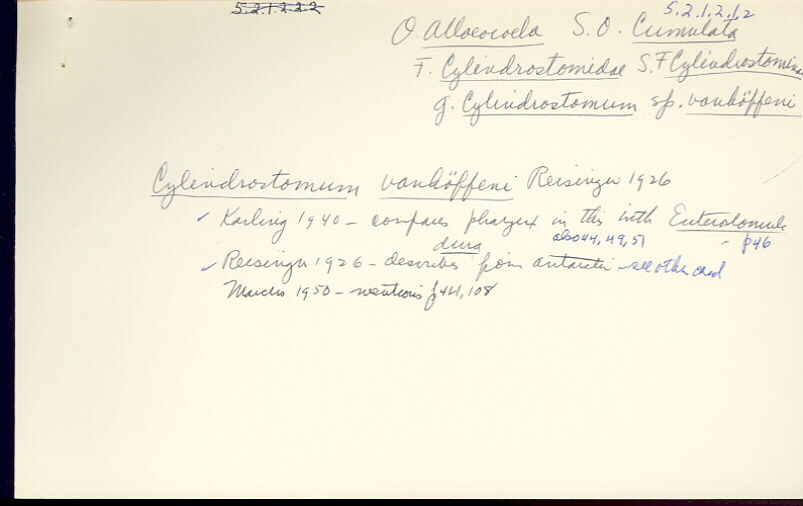 5.2.1.2.2.2
5.2.1.2.1.2
O. Alloeocoela S.O. Cumulata
F. Cylindrostomidae S.F Cylindrostominae
g. Cylindrostomum sp. vanhöffeni
Cylindrostomum vanhöffeni Reisinger 1926
✓ Karling 1940 – compares pharynx in this with Enterostomula
dura also 44, 49, 51 p46
✓ Reisinger 1926 – describes from antarctic – see other card
Marcus 1950 – mentions p 44, 108